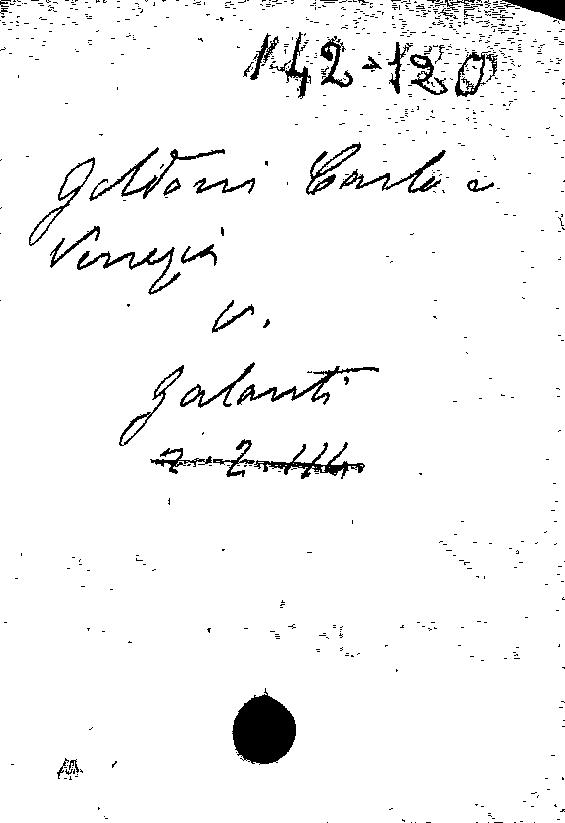 142-120
Goldoni Carlo e
Venezia
v.
Galanti